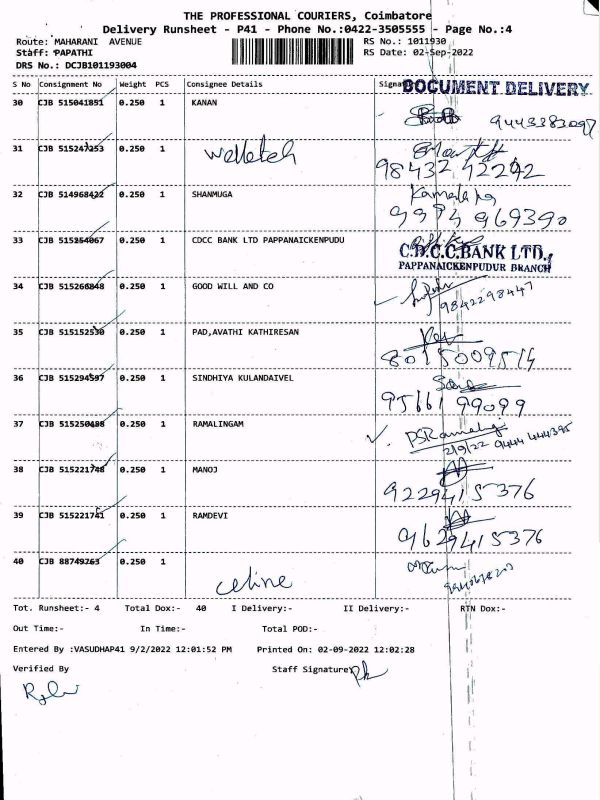 THE PROFESSIONAL COURIERS, Coimbatore
Delivery Runsheet - P41 - Phone No.:0422-3505555 - Page No.:4
Route: MAHARANI AVENUE RS No.: 1011930
Staff: PAPATHI RS Date: 02-Sep-2022
DRS No.: DCJB101193004
S No Consignment No Weight PCS Consignee Details Signa
DOCUMENT DELIVERY
30 CJB 515041851 0.250 1 KANAN
9443383097
31 CJB 515247253 0.250 1
98432 42242
32 CJB 514968422 0.250 1 SHANMUGA
9994 969390
33 CJB 515254067 0.250 1 CDCC BANK LTD PAPPANAICKENPUDU
C.D.C.C.BANK LTD.,
PAPPANAICKENPUDUR BRANCH
34 CJB 515266848 0.250 1 GOOD WILL AND CO
9842298447
35 CJB 515152530 0.250 1 PAD,AVATHI KATHIRESAN
8015009514
36 CJB 515294597 0.250 1 SINDHIYA KULANDAIVEL
95661 99099
37 CJB 515250488 0.250 1 RAMALINGAM
2/9/22 9444 444395
38 CJB 515221748 0.250 1 MANOJ
9229415376
39 CJB 515221741 0.250 1 RAMDEVI
9629415376
40 CJB 88749263 0.250 1
celine
Tot. Runsheet:- 4 Total Dox:- 40 I Delivery:- II Delivery:- RTN Dox:-
Out Time:- In Time:- Total POD:-
Entered By :VASUDHAP41 9/2/2022 12:01:52 PM Printed On: 02-09-2022 12:02:28
Verified By Staff Signature